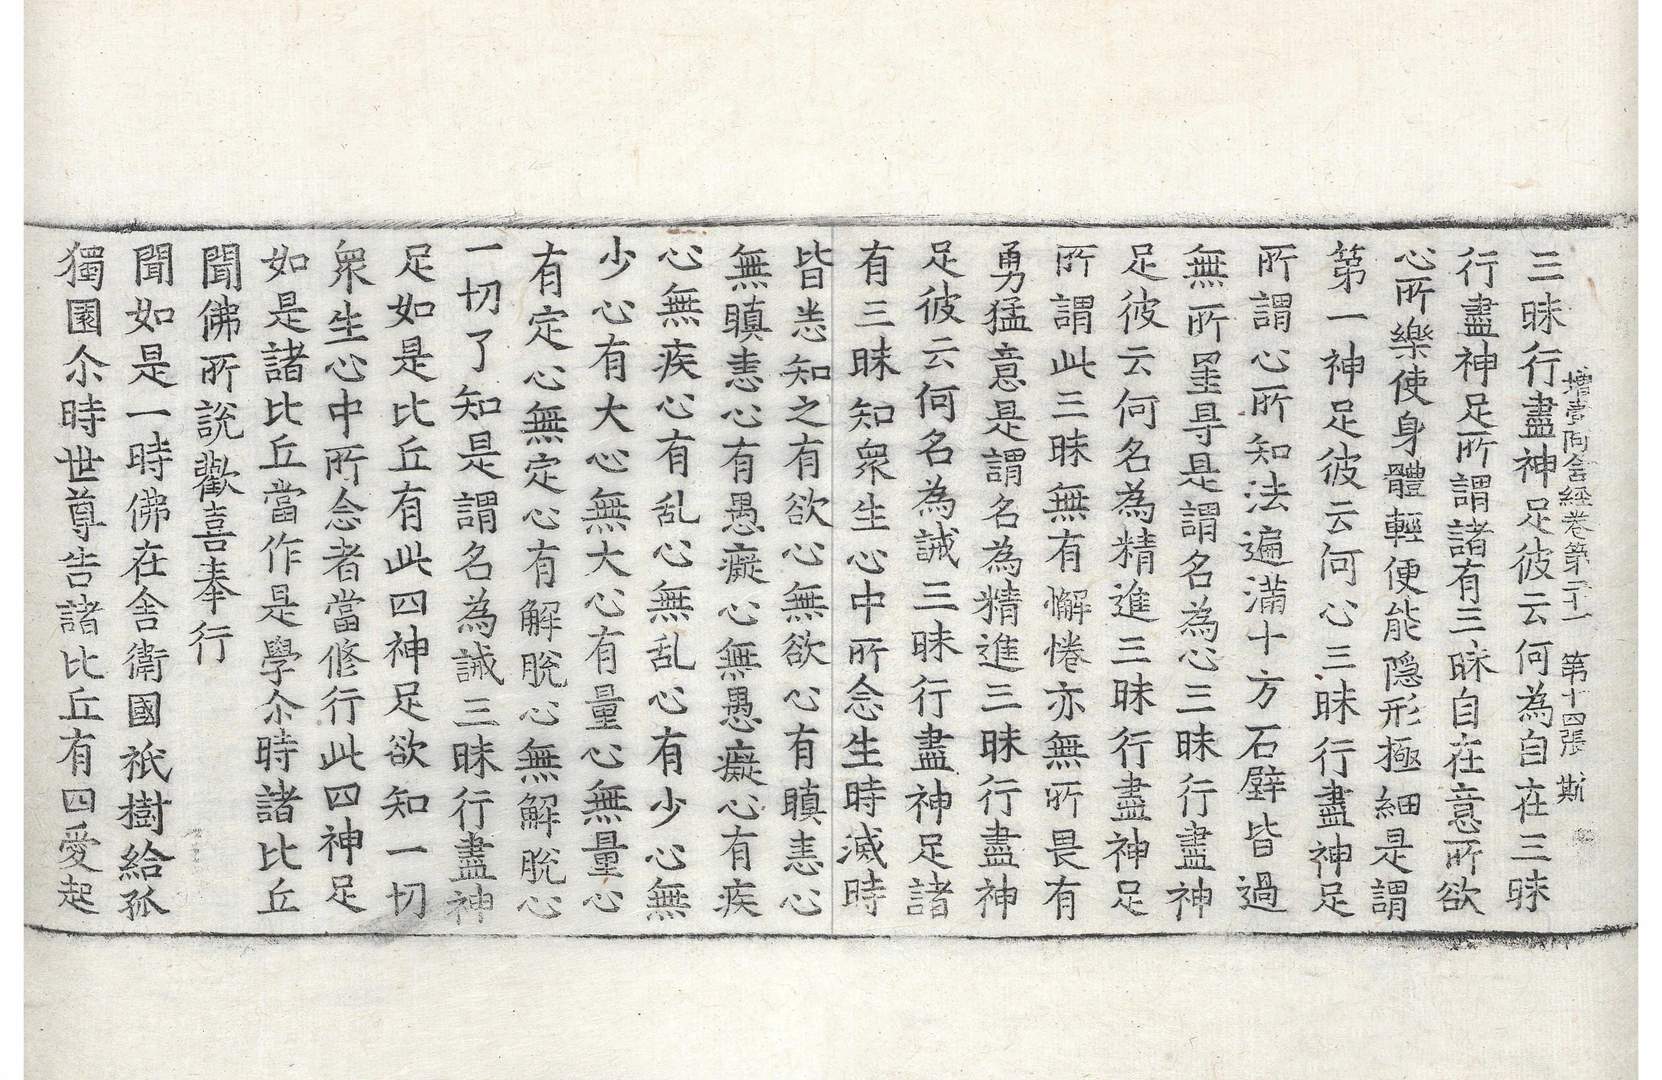 增壹阿含經卷第二十一 第十四張 斯
三昧行盡神足彼云何為自在三昧
行盡神足所謂諸有三昧自在意所欲
心所樂使身體輕便能隱形極細是謂
第一神足彼云何心三昧行盡神足
所謂心所知法遍滿十方石壁皆過
無所罣㝵是謂名為心三昧行盡神
足彼云何名為精進三昧行盡神足
所謂此三昧無有懈惓亦無所畏有
勇猛意是謂名為精進三昧行盡神
足彼云何名為誡三昧行盡神足諸
有三昧知衆生心中所念生時滅時
皆悉知之有欲心無欲心有瞋恚心
無瞋恚心有愚癡心無愚癡心有疾
心無疾心有乱心無乱心有少心無
少心有大心無大心有量心無量心
有定心無定心有解脫心無解脫心
一切了知是謂名為誡三昧行盡神
足如是比丘有此四神足欲知一切
衆生心中所念者當修行此四神足
如是諸比丘當作是學尒時諸比丘
聞佛所說歡喜奉行
聞如是一時佛在舍衛國祇樹給孤
獨園尒時世尊告諸比丘有四愛起